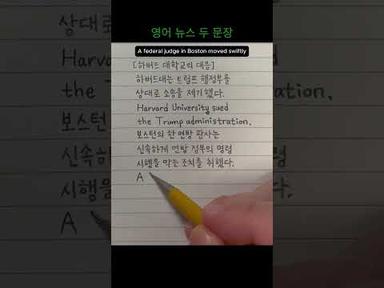 영어 뉴스 두 문장
A federal judge in Boston moved swiftly
[하버드 대학교의 대응]
하버드대는 트럼프 행정부를
상대로 소송을 제기했다.
Harvard University sued
the Trump administration.
보스턴의 한 연방 판사는
신속하게 연방 정부의 명령
시행을 막는 조치를 취했다.
A